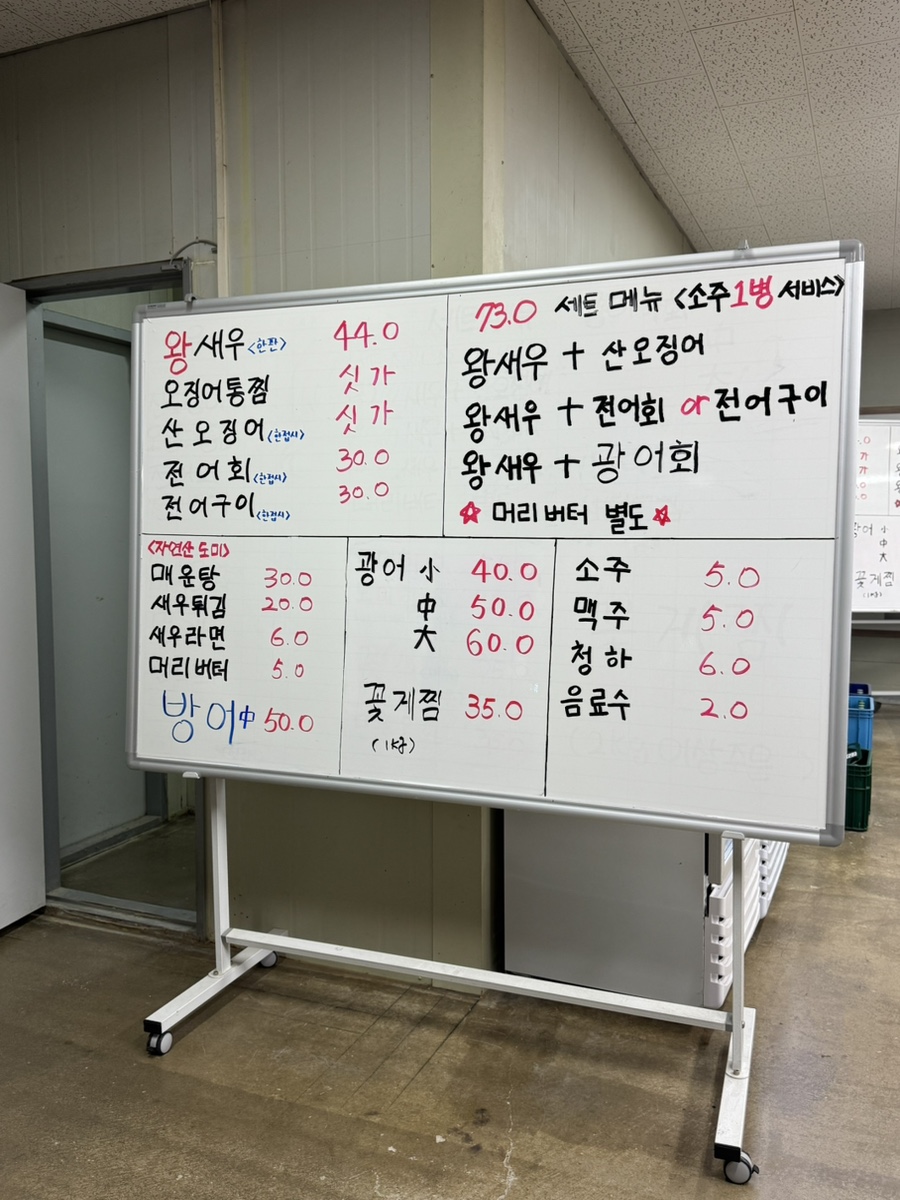 왕새우<한판> 44.0
오징어통찜 싯가
산오징어<한접시> 싯가
전어회<한접시> 30.0
전어구이<한접시> 30.0
73.0 세트 메뉴 <소주1병 서비스>
왕새우 + 산오징어
왕새우 + 전어회 or 전어구이
왕새우 + 광어회
☆ 머리버터 별도 ☆
<자연산 도미>
매운탕 30.0
새우튀김 20.0
새우라면 6.0
머리버터 5.0
방어 中 50.0
광어 小 40.0
中 50.0
大 60.0
꽃게찜 35.0
(1kg)
소주 5.0
맥주 5.0
청하 6.0
음료수 2.0
광어 小
中
大
꽃게찜
(1kg)